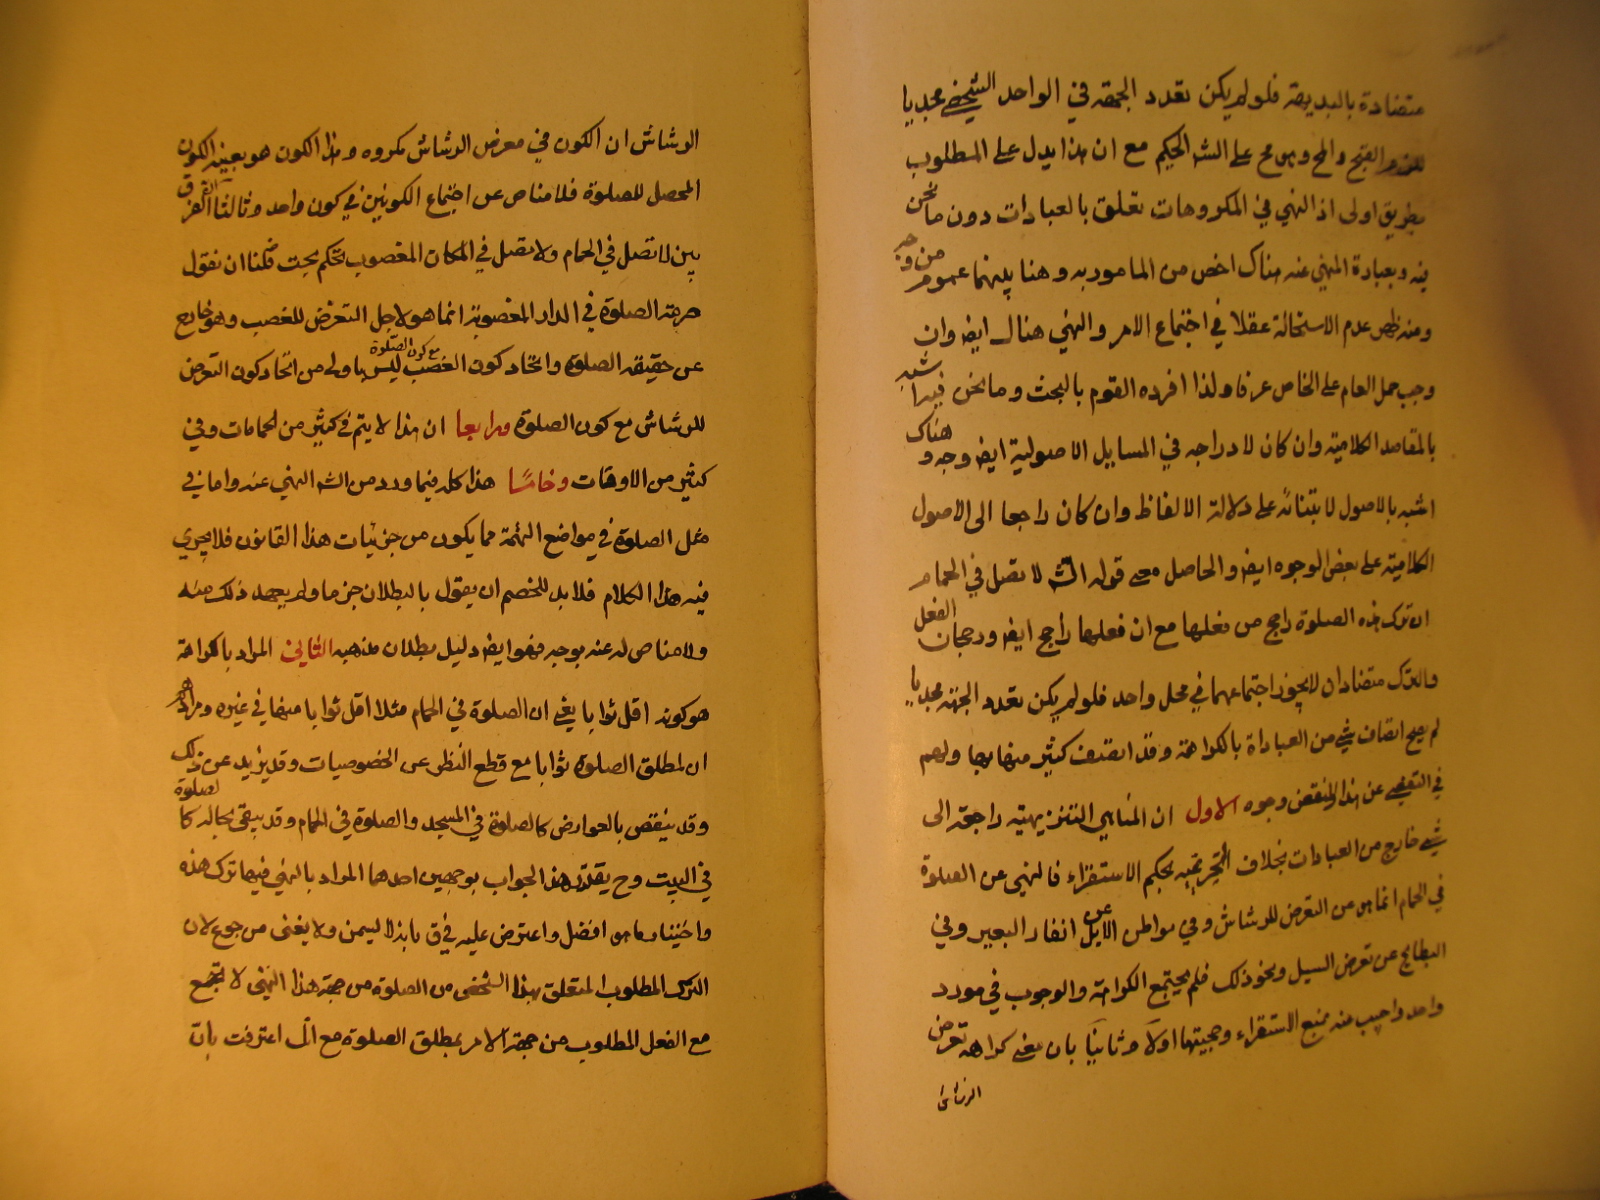 متضادة بالبديهة فلو لم يكن تعدد الجهة في الواحد الشخصي مجديا
للزم القبح والمح وهو مح على الشه الحكيم مع ان هذا يدل على المطلوب
بطريق اولى اذ النهي في المكروهات تعلق بالعبادات دون ما نحن
فيه وبعبادة المنهي عنه هناك اخص من المامور به وهنا بينهما عموم من وجه
ومنه ظهر عدم الاستحالة عقلا في اجتماع الامر والنهي هناك ايض وان
وجب حمل العام على الخاص عرفا ولذا افرده القوم بالبحث وما نحن فيه اشبه
بالمقاصد الكلامية وان كان لادراجه في المسايل الاصولية ايض وجه وهناك
اشبه بالاصول لابتنائه على دلالة الالفاظ وان كان راجعا الى الاصول
الكلامية على بعض الوجوه ايض والحاصل معنى قوله الشه لا تصل في الحمام
ان ترك هذه الصلوة راجح من فعلها مع ان فعلها راجح ايض ورجحان الفعل
والترك متضادان لا يجوز اجتماعهما في محل واحد فلو لم يكن تعدد الجهة مجديا
لم يصح اتصاف شئ من العبادة بالكراهة وقد اتصف كثير منها بها ولهم
في التفصي عن هذا النقض وجوه الاول ان المناهي التنزيهية راجعة الى
شئ خارج من العبادات بخلاف التحريمية بحكم الاستقراء فالنهي عن الصلوة
في الحمام انما هو عن التعرض للرشاش وفي مواطن الابل عن انفار البعير وفي
البطايح عن تعرض السيل ونحو ذلك فلم يجتمع الكراهة والوجوب في مورد
واحد واجيب عنه بمنع الاستقراء وحجيتها اولا وثانيا بان معنى كراهة تعرض
الرشاش
الرشاش ان الكون في معرض الرشاش مكروه وهذا الكون هو بعينه الكون
المحصل للصلوة فلا مناص عن اجتماع الكونين في كون واحد وثالثا الفرق
بين لا تصل في الحمام ولا تصل في المكان المغصوب تحكم بحت فلنا ان نقول
حرمة الصلوة في الدار المغصوبة انما هو لاجل التعرض للغصب وهو خارج
عن حقيقة الصلوة واتحاد كون الغصب مع كون الصلوة ليس باولى من اتحاد كون التعرض
للرشاش مع كون الصلوة ورابعا ان هذا لا يتم في كثير من الحمامات وفي
كثير من الاوقات وخامسا هذا كله فيما ورد من الشه النهي عنه واما في
مثل الصلوة في مواضع التهمة مما يكون من جزئيات هذا القانون فلا يجري
فيه هذا الكلام فلا بد للخصم ان يقول بالبطلان جزما ولم يعهد ذلك منه
ولا مناص له عنه بوجه فهو ايض دليل بطلان مذهبه الثاني المراد بالكراهة
هو كونه اقل ثوابا يعني ان الصلوة في الحمام مثلا اقل ثوابا منها في غيره ومرادهم
ان لمطلق الصلوة ثوابا مع قطع النظر عن الخصوصيات وقد يزيد عن ذلك
وقد ينقص بالعوارض كالصلوة في المسجد والصلوة في الحمام وقد يبقى بحاله كالصلوة
في البيت وح يقدر هذا الجواب بوجهين احدهما المراد بالنهي فيها ترك هذه
واختيار ما هو افضل واعترض عليه في ق بان هذا ليس ولا يغنى من جوع لان
الترك المطلوب المتعلق بهذا الشخص من الصلوة من جهة هذا النهي لا يجتمع
مع الفعل المطلوب من جهة الامر بمطلق الصلوة مع انك اعترفت بان